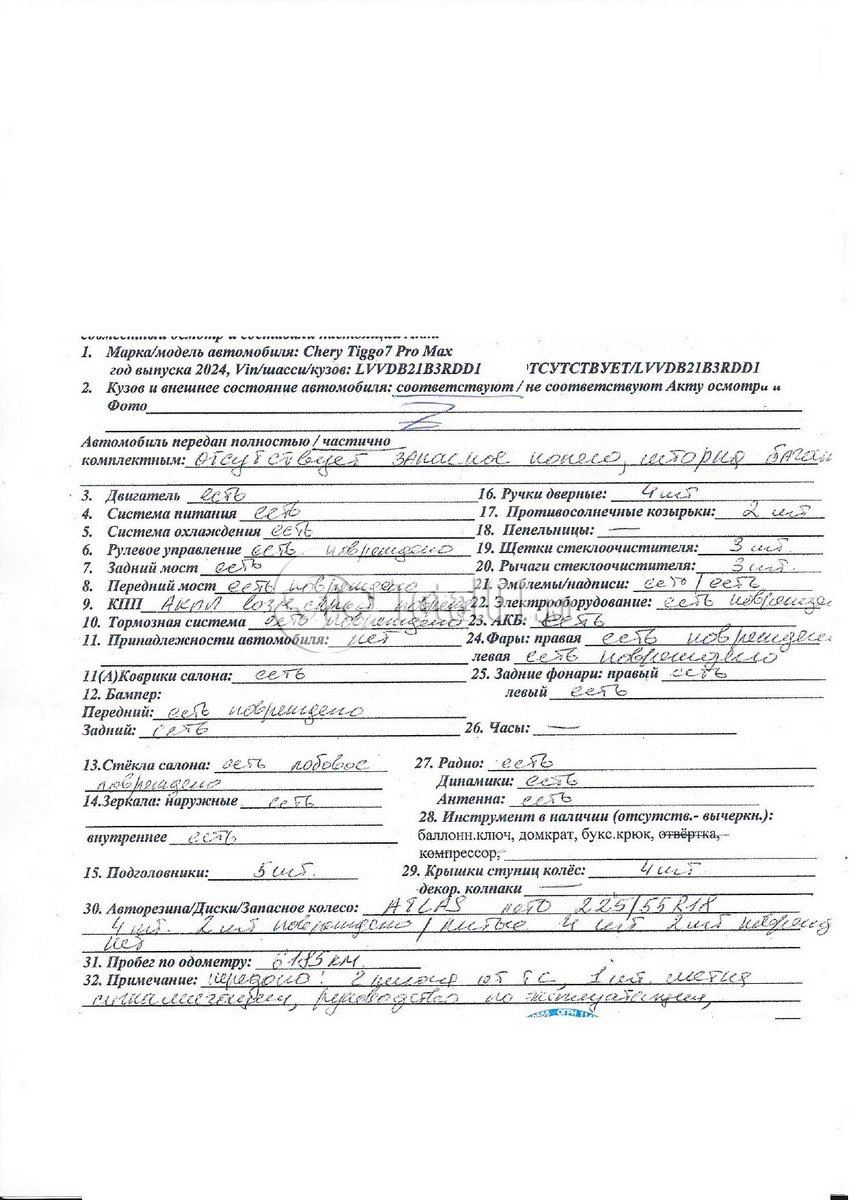 1. Марка/модель автомобиля: Chery Tiggo7 Pro Max
год выпуска 2024, Vin/шасси/кузов: LVVDB21B3RDD1 ТСУТСТВУЕТ/LVVDB21B3RDD1
2. Кузов и внешнее состояние автомобиля: соответствуют / не соответствуют Акту осмотра и
Фото
Автомобиль передан полностью / частично
комплектным: отсутствует запасное колесо, шторка багаж
3. Двигатель есть
4. Система питания есть
5. Система охлаждения есть
6. Рулевое управление есть повреждено
7. Задний мост есть
8. Передний мост есть повреждено
9. КПП АКПП
10. Тормозная система есть повреждено
11. Принадлежности автомобиля: нет
11(А)Коврики салона: есть
12. Бампер:
Передний: есть повреждено
Задний: есть
16. Ручки дверные: 4 шт
17. Противосолнечные козырьки: 2 шт
18. Пепельницы: —
19. Щетки стеклоочистителя: 3 шт
20. Рычаги стеклоочистителя: 3 шт.
21. Эмблемы/надписи: есть / есть
22. Электрооборудование: есть поврежде
23. АКБ: есть
24.Фары: правая есть поврежден
левая есть повреждено
25. Задние фонари: правый есть
левый есть
26. Часы: —
13.Стёкла салона: есть лобовое
повреждено
14.Зеркала: наружные есть
внутреннее есть
15. Подголовники: 5 шт.
27. Радио: есть
Динамики: есть
Антенна: есть
28. Инструмент в наличии (отсутств.- вычеркн.):
баллонн.ключ, домкрат, букс.крюк, отвёртка,
компрессор,
29. Крышки ступиц колёс: 4 шт
декор. колпаки —
30. Авторезина/Диски/Запасное колесо: ATLAS лето 225/55R18
4 шт. 2 шт повреждено / литые 4 шт 2 шт поврежд
нет
31. Пробег по одометру: 6185 км
32. Примечание: передано: 2 ключа от ТС, 1 шт. метка
сигнализации, руководство по эксплуатации,